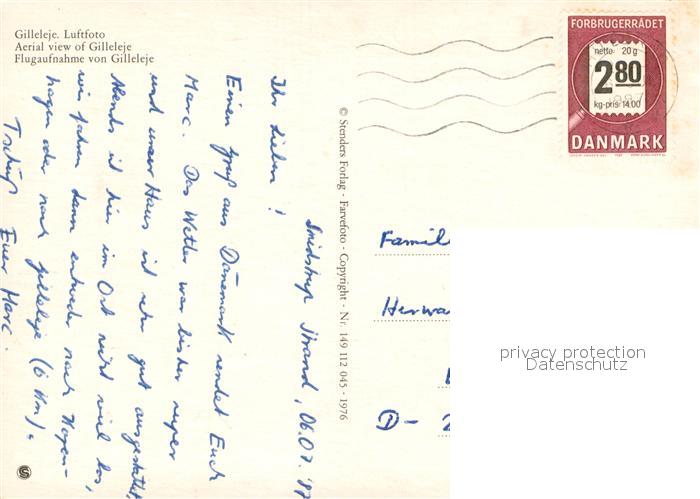 Gilleleje. Luftfoto
Aerial view of Gilleleje
Flugaufnahme von Gilleleje
Smidstrup Strand, 06.07.'87
Ihr Lieben!
Einen Gruß aus Dänemark sendet Euch
Marc. Das Wetter war bisher super
und unser Haus ist sehr gut ausgestattet.
Abends ist hier im Ort nicht viel los,
wir fahren dann entweder nach Kopen-
hagen oder nach Gilleleje (6 km).
Tschüß
Euer Marc.
© Stenders Forlag - Farvefoto - Copyright - Nr. 149 112 045 - 1976
FORBRUGERRÅDET
netto: 20 g
2 80
kg-pris 14.00
DANMARK
Famil
Herwa
D- 2
privacy protection
Datenschutz